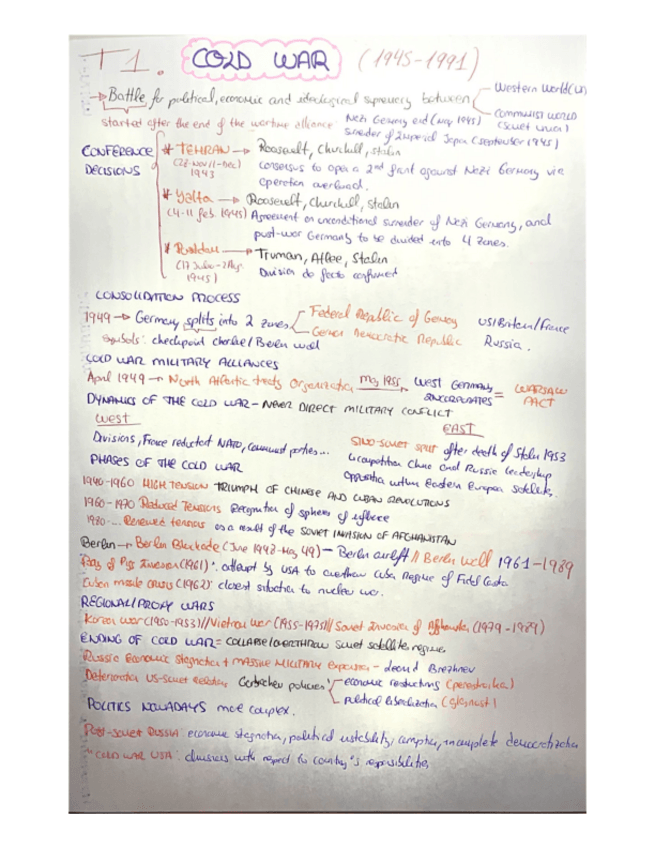 T1. COLD WAR (1945-1991)
→ Battle for political, economic and ideological supremacy between Western World
Communist World (Soviet Union)
started after the end of the wartime alliance Nazi Germany end 1945)
surrender of Imperial Japan (september 1945)
CONFERENCE DECISIONS
* TEHRAN → Roosevelt, Churchill, Stalin
1943
consensus to open a 2nd front against Nazi Germany via
Operation overlord.
* Yalta → Roosevelt, Churchill, Stalin
(4-11 feb. 1945) Agreement on unconditional surrender of Nazi Germany, and
post-war Germany to be divided into 4 zones.
* → Truman, Stalin
1945)
Division de facto confirmed
CONSOLIDATION PROCESS
1949 → Germany splits into 2 zones Federal Republic of US/Britain/France
German Democratic Republic Russia.
symbols: checkpoint charlie/Berlin wall
COLD WAR MILITARY ALLIANCES
April 1949 → North Atlantic treaty Organization May 1955 West Germany = WARSAW PACT
DYNAMICS OF THE COLD WAR - NEVER DIRECT MILITARY CONFLICT
WEST
Divisions, France NATO, parties...
EAST
SINO-SOVIET split after death of Stalin 1953
China and Russia leadership
Opposition within Eastern European satellites.
PHASES OF THE COLD WAR
1946-1960 HIGH TENSION TRIUMPH OF CHINESE AND CUBAN REVOLUTIONS
1960-1970 Reduced Tensions Recognition of spheres of
1980-... Renewed tensions as a result of the SOVIET INVASION OF AFGHANISTAN
Berlin → Berlin Blockade (June 1948-May 49) - Berlin airlift // Berlin wall 1961-1989
Bay of Pigs Invasion (1961): attempt by USA to overthrow Cuba Regime of Fidel Castro
Cuban missile crisis (1962): closest to nuclear war.
REGIONAL/PROXY WARS
Korean war (1950-1953) // Vietnam war (1955-1975) // Soviet Invasion of (1979-1989)
ENDING OF COLD WAR = COLLAPSE/OVERTHROW soviet satellite regimes
Russia Economic Stagnation + MASSIVE MILITARY - Brezhnev
US-Soviet Relations Gorbachev policies economic (perestroika)
political liberalization (glasnost)
POLITICS NOWADAYS more complex.
Post-soviet RUSSIA: economic stagnation, political instability, corruption, incomplete democratization
" COLD WAR USA: divisions with respect to country's responsibilities